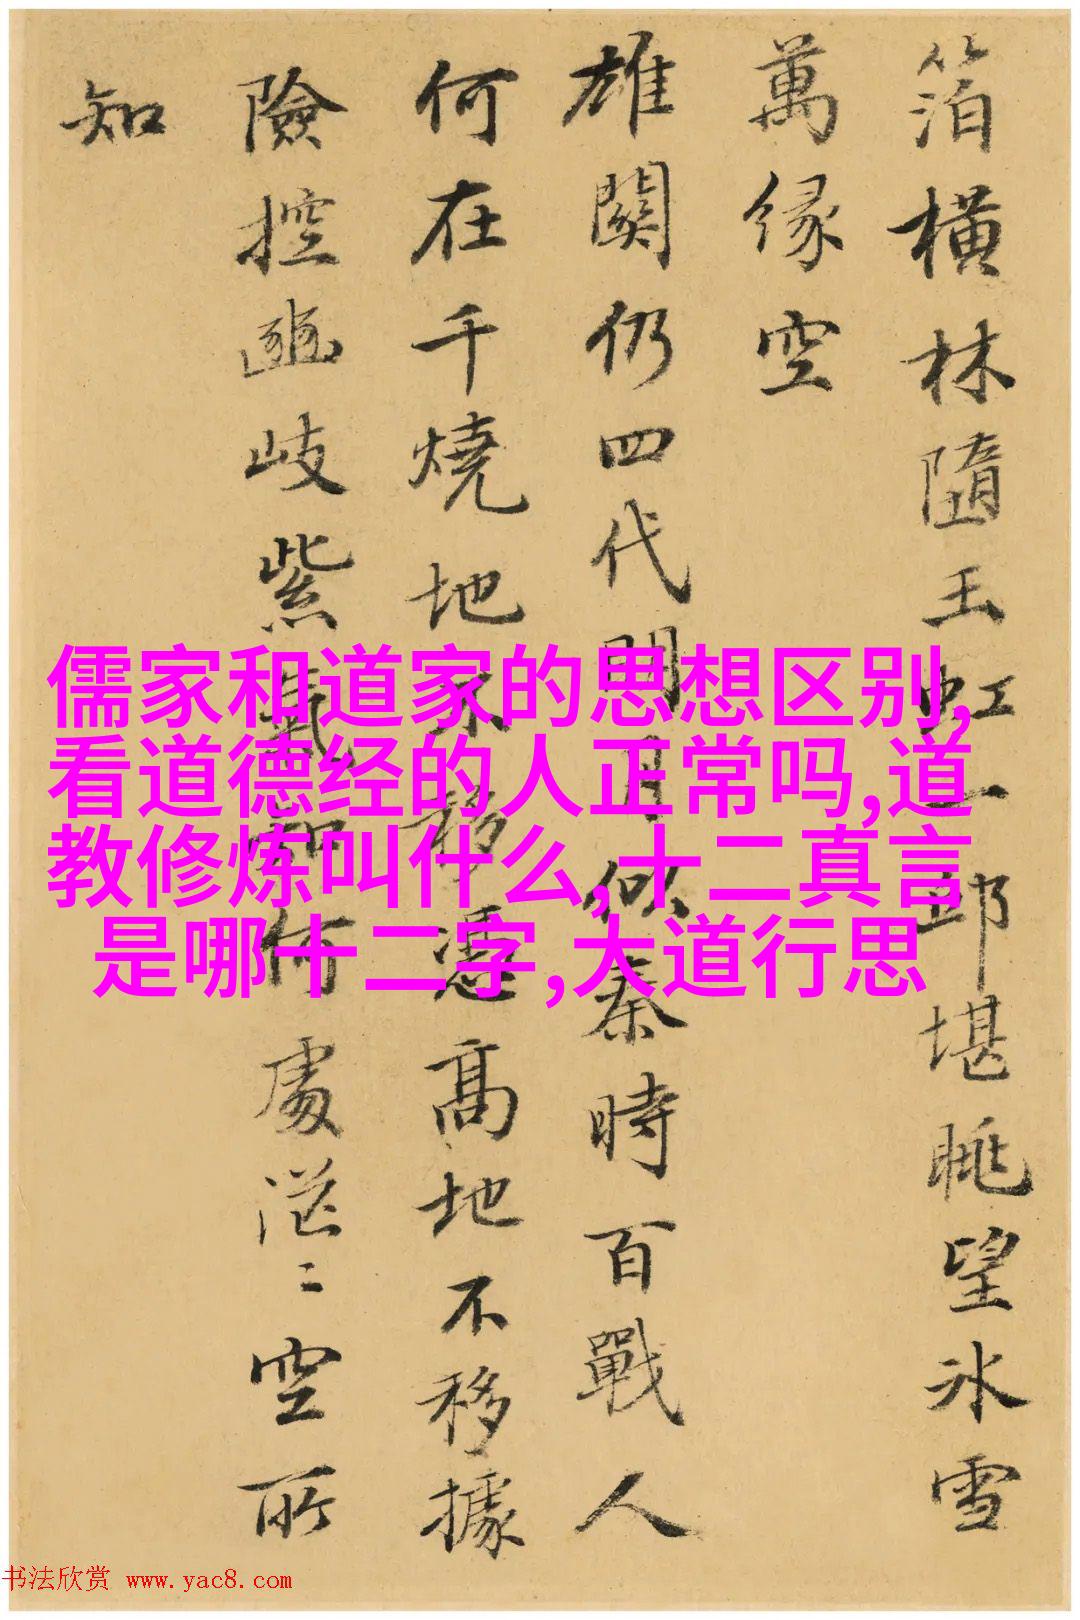 箔橫林隨玉虹一邱堪眺望冰雪
萬緣空
雄關仍四代明月似秦時百戰人
何在千燒地不移憑高地不移據
險控豳岐紫氣知何處茫〻空所
知
儒家和道家的思想区别,
看道德经的人正常吗,道
教修炼叫什么,十二真言
是哪十二字,大道行思
书法欣赏 www.yac8.com